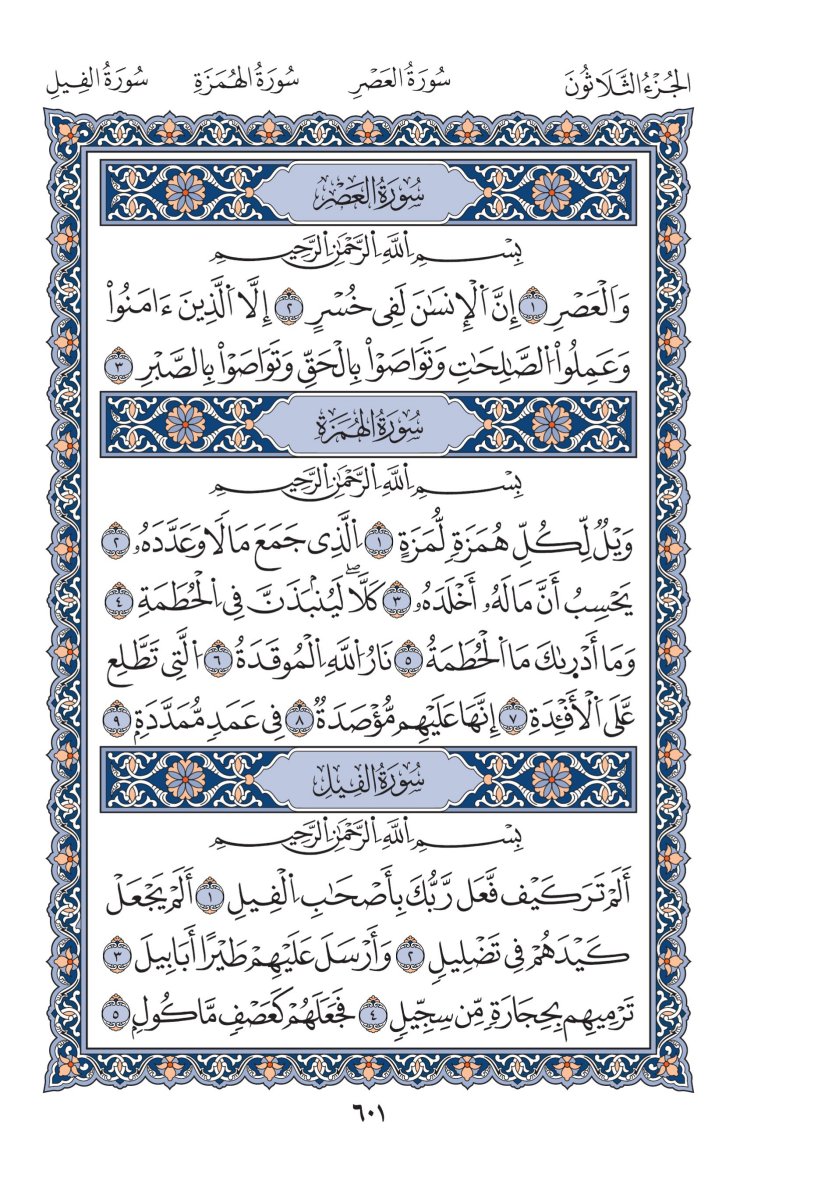 الجُزْءُ الثَّلَاثُونَ سُورَةُ العَصْرِ سُورَةُ الهُمَزَةِ سُورَةُ الفِيلِ
سُورَةُ العَصْرِ
بِسْمِ اِللَّهِ اِلرَّحْمَٰنِ اِلرَّحِيمِ
وَاَلْعَصْرِ ١ إِنَّ اَلْإِنسَٰنَ لَفِى خُسْرٍ ٢ إِلَّا اَلَّذِينَ ءَامَنُواْ
وَعَمِلُواْ اُلصَّٰلِحَٰتِ وَتَوَاصَوْاْ بِالْحَقِّ وَتَوَاصَوْاْ بِالصَّبْرِ ٣
سُورَةُ الهُمَزَةِ
بِسْمِ اِللَّهِ اِلرَّحْمَٰنِ اِلرَّحِيمِ
وَيْلٌ لِّكُلِّ هُمَزَةٍ لُّمَزَةٍ ١ اِلَّذِى جَمَعَ مَالًا وَعَدَّدَهُۥ ٢
يَحْسِبُ أَنَّ مَالَهُۥ أَخْلَدَهُۥ ٣ كَلَّاۖ لَيُنۢبَذَنَّ فِى اِلْحُطَمَةِ ٤
وَمَا أَدْرِىٰكَ مَا اَلْحُطَمَةُ ٥ نَارُ اُللَّهِ اِلْمُوقَدَةُ ٦ اُلَّتِى تَطَّلِع
عَّلَى اَلْأَفْـِٔدَةِ ٧ إِنَّهَا عَلَيْهِم مُّؤْصَدَةٌ ٨ فِى عَمَدٍ مُّمَدَّدَةِۭ ٩
سُورَةُ الفِيلِ
بِسْمِ اِللَّهِ اِلرَّحْمَٰنِ اِلرَّحِيمِ
أَلَمْ تَرَ كَيْف فَّعَل رَّبُّكَ بِأَصْحَٰبِ اِلْفِيلِ ١ أَلَمْ يَجْعَلْ
كَيْدَهُمْ فِى تَضْلِيلٍ ٢ وَأَرْسَلَ عَلَيْهِمْ طَيْرًا أَبَابِيلَ ٣
تَرْمِيهِم بِحِجَارَةٍ مِّن سِجِّيلٍ ٤ فَجَعَلَهُمْ كَعَصْفٍ مَّاكُولِۭ ٥
٦٠١